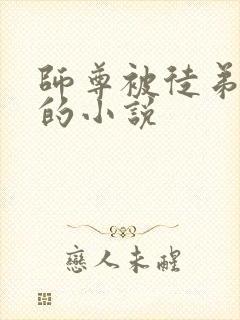 師尊被徒弟
的小説
戀人未醒